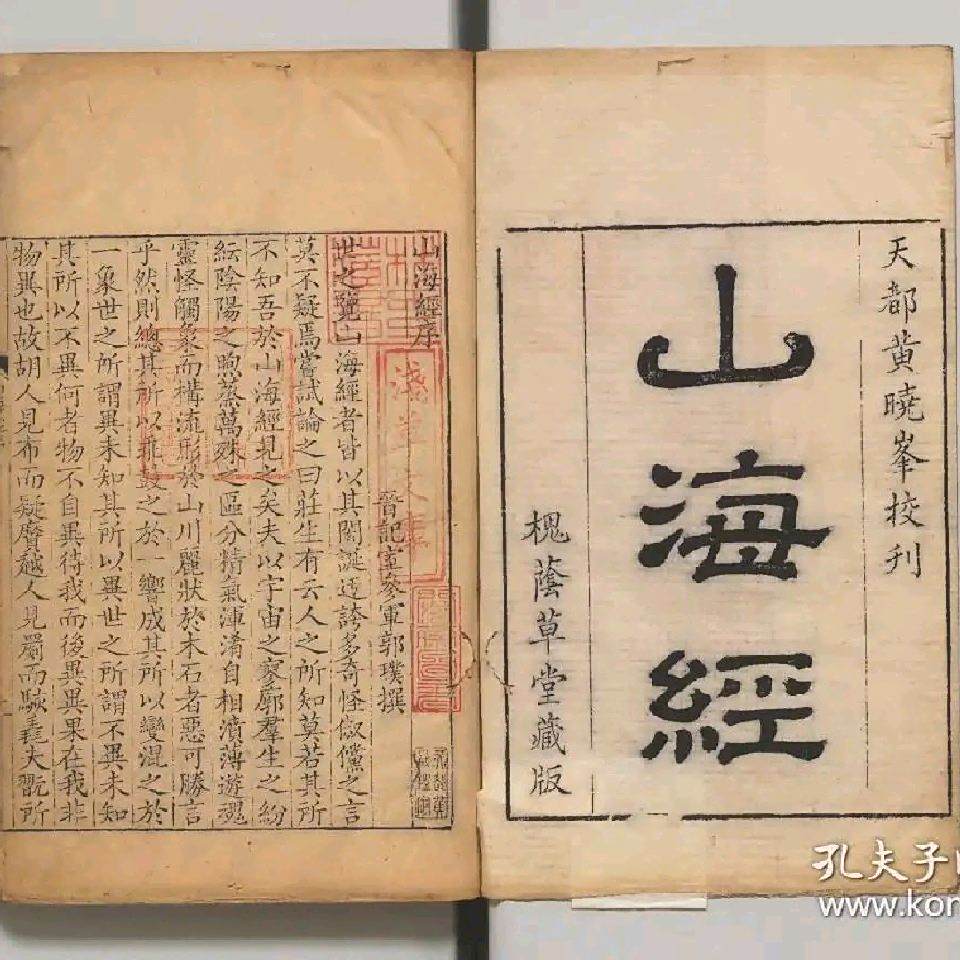 天都黄曉峯校刊
山海經
槐蔭草堂藏版
山海經序
晉記室參軍郭璞撰
世之覽山海經者皆以其閎誕迂誇多奇怪俶儻之言
莫不疑焉嘗試論之曰莊生有云人之所知莫若其所
不知吾於山海經見之矣夫以宇宙之寥廓羣生之紛
紜陰陽之煦蒸萬殊之區分精氣渾淆自相濆薄遊魂
靈怪觸象而構流形於山川麗狀於木石者惡可勝言
乎然則總其所以乖鼓之於一響成其所以變混之於
一象世之所謂異未知其所以異世之所謂不異未知
其所以不異何者物不自異待我而後異異果在我非
物異也故胡人見布而疑黂越人見罽而駭毳夫翫所
淺草文庫
孔夫子
www.kon